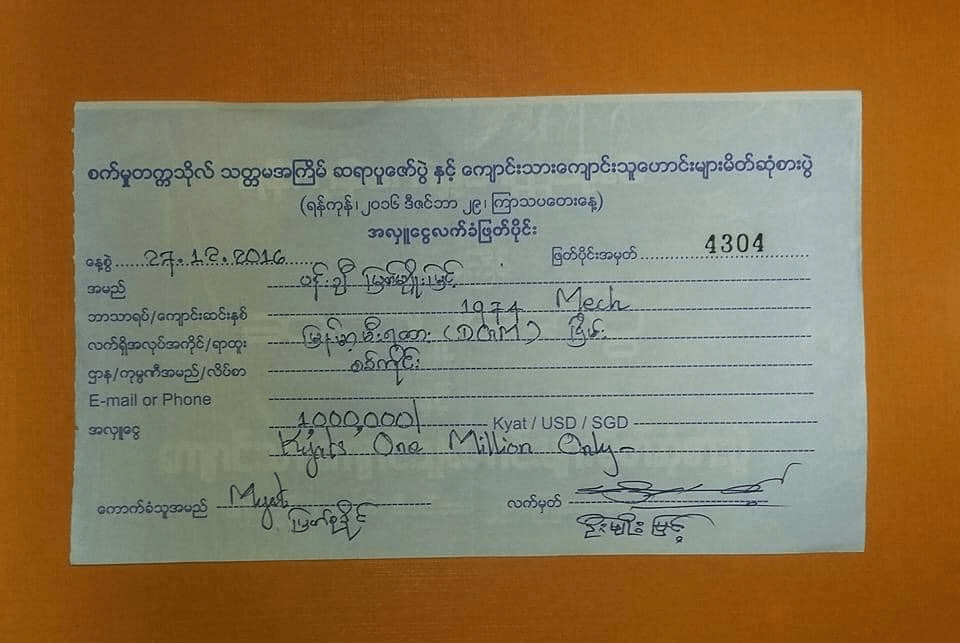 စက်မှုတက္ကသိုလ် သတ္တမအကြိမ် ဆရာပူဇော်ပွဲ နှင့် ကျောင်းသားကျောင်းသူဟောင်းများမိတ်ဆုံစားပွဲ
(ရန်ကုန်၊ ၂၀၁၆ ဒီဇင်ဘာ ၂၉၊ ကြာသပတေးနေ့)
အလှူငွေလက်ခံဖြတ်ပိုင်း
နေ့စွဲ 27.12.2016 ဖြတ်ပိုင်းအမှတ် 4304
အမည် ပန်းချီ မြတ်မျိုးမြင့်
ဘာသာရပ်/ကျောင်းဆင်းနှစ် 1974 Mech
လက်ရှိအလုပ်အကိုင်/ရာထူး မြန်မာ့မီးရထား (DGM) ငြိမ်း
ဌာန/ကုမ္ပဏီအမည်/လိပ်စာ စစ်ကိုင်း
E-mail or Phone
အလှူငွေ 1,000,000/ Kyat / USD / SGD
Kyats One Million Only
ကောက်ခံသူအမည် Myat လက်မှတ်
ဦးမျိုးမြင့်